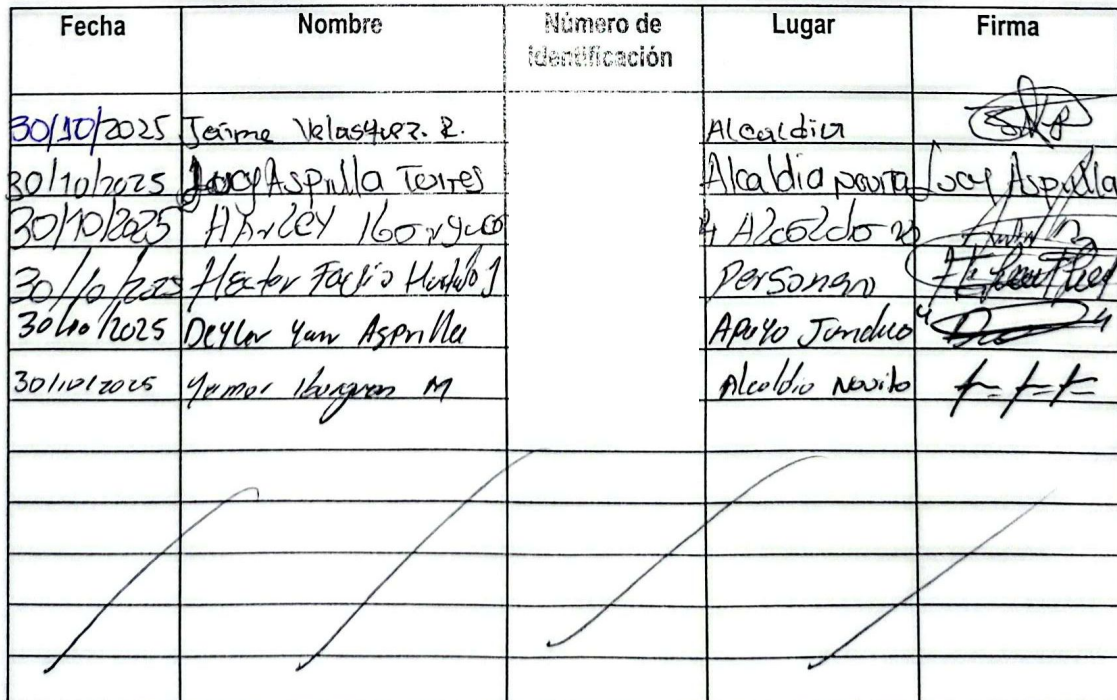 Fecha Nombre Número de identificación Lugar Firma
30/10/2025 Jaime Velasquez. R. Alcaldia
30/10/2025 Lucy Asprilla Torres Alcaldia Lucy Asprilla
30/10/2025 Harley Ibarguen
30/10/2025 Hector Fabio Hurtado Personero
30/10/2025 Deyler Yair Asprilla Apoyo Juridico
30/10/2025 Ibarguen M Alcaldia Novita